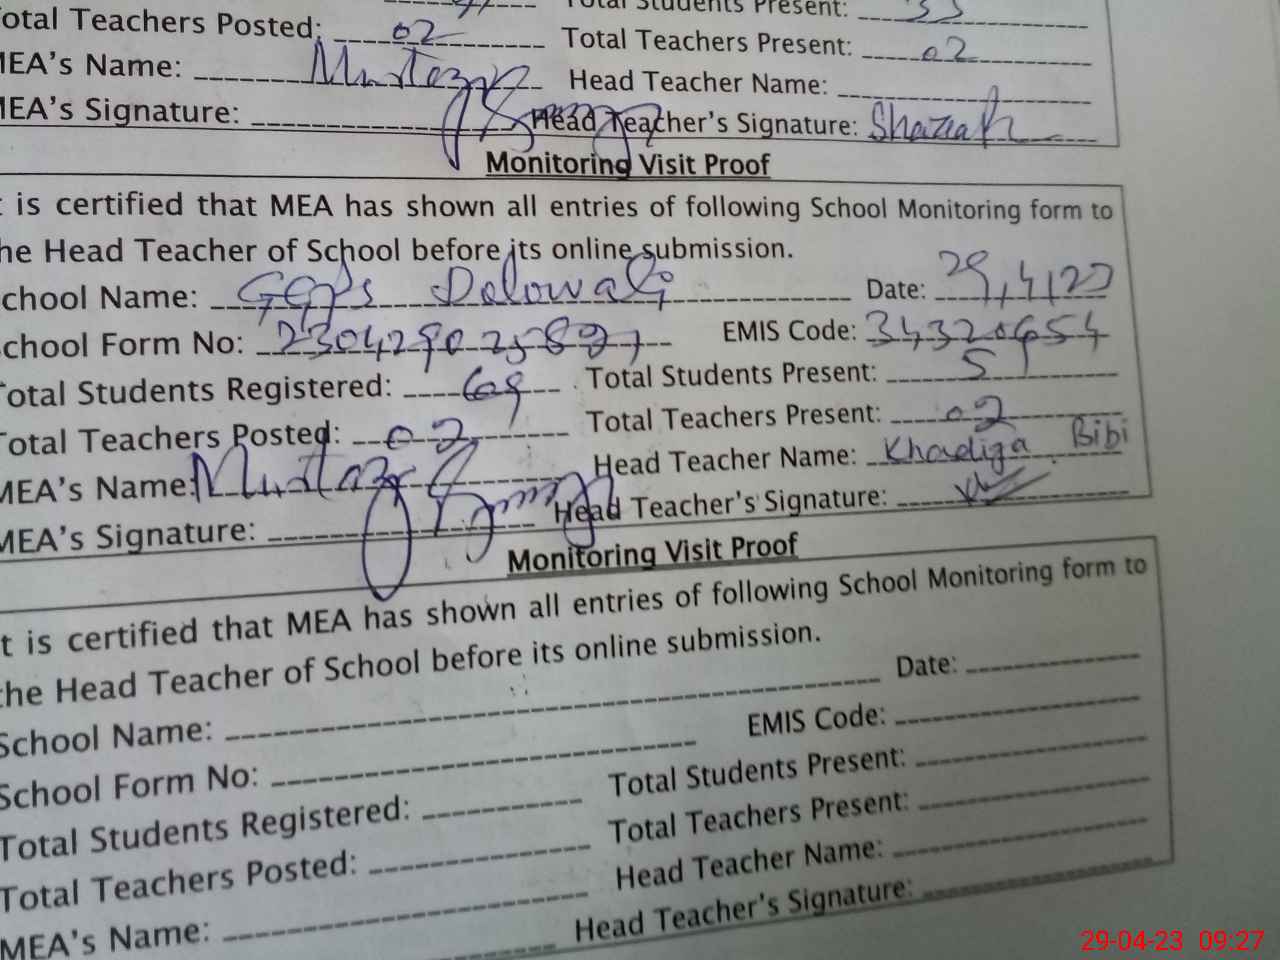 Total Students Present: 33
otal Teachers Posted: 02 Total Teachers Present: 02
MEA's Name: Mumtaz Head Teacher Name:
MEA's Signature: Head Teacher's Signature: Shazia
Monitoring Visit Proof
t is certified that MEA has shown all entries of following School Monitoring form to
he Head Teacher of School before its online submission.
chool Name: GGPS Dalowali Date: 29,4,23
chool Form No: EMIS Code: 34320654
Total Students Registered: 69 Total Students Present: 59
Total Teachers Posted: 02 Total Teachers Present: 02
MEA's Name: Mumtaz Head Teacher Name: Khadija Bibi
MEA's Signature: Head Teacher's Signature:
Monitoring Visit Proof
t is certified that MEA has shown all entries of following School Monitoring form to
the Head Teacher of School before its online submission.
School Name: Date:
School Form No: EMIS Code:
Total Students Registered: Total Students Present:
Total Teachers Posted: Total Teachers Present:
MEA's Name: Head Teacher Name:
Head Teacher's Signature:
29-04-23 09:27